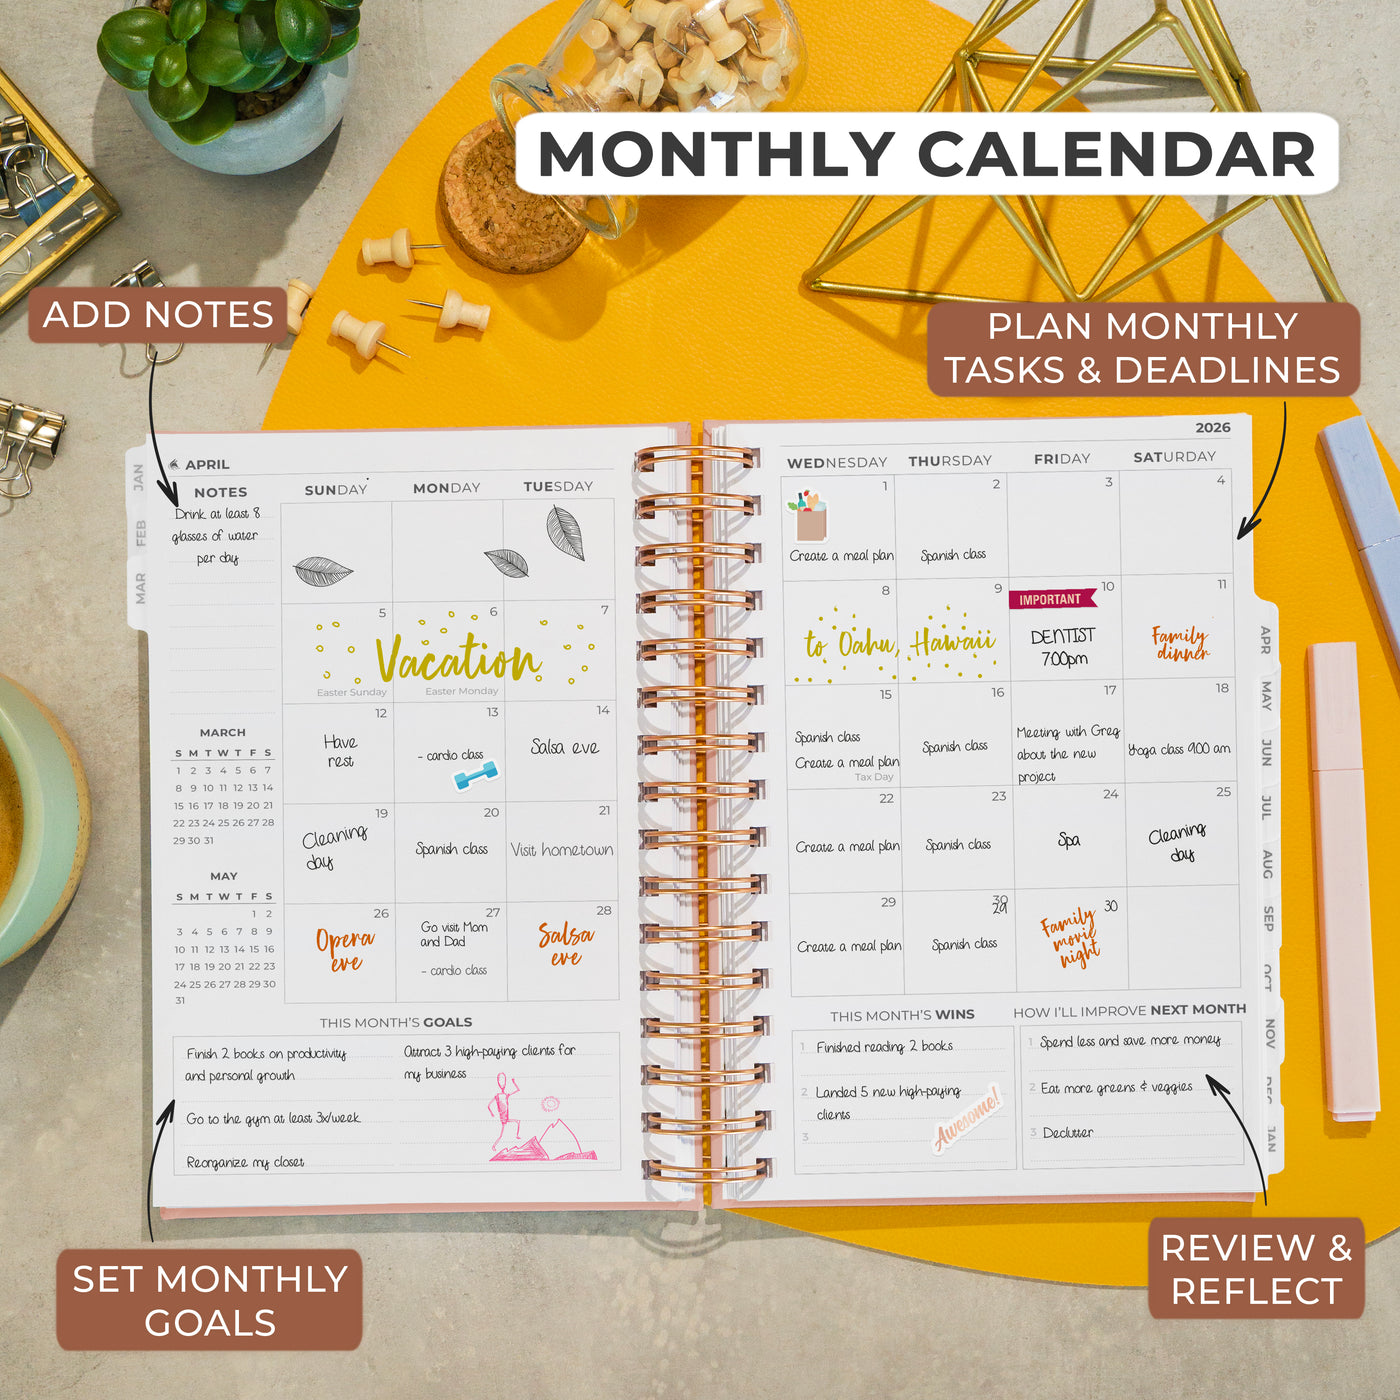 MONTHLY CALENDAR
ADD NOTES
PLAN MONTHLY
TASKS & DEADLINES
APRIL
2026
NOTES
Drink at least 8
glasses of water
per day
SUNDAY MONDAY TUESDAY
WEDNESDAY THURSDAY FRIDAY SATURDAY
1 2 3 4
Create a meal plan
Spanish class
5 6 7
Vacation
Easter Sunday Easter Monday
8 9 10 11
to Oahu, Hawaii
IMPORTANT
DENTIST
7:00pm
Family
dinner
12 13 14
Have
rest
- cardio class
Salsa eve
15 16 17 18
Spanish class
Create a meal plan
Tax Day
Spanish class
Meeting with Greg
about the new
project
Yoga class 9:00 am
19 20 21
Cleaning
day
Spanish class
Visit hometown
22 23 24 25
Create a meal plan
Spanish class
Spa
Cleaning
day
26 27 28
Opera
eve
Go visit Mom
and Dad
- cardio class
Salsa
eve
29 30
29
30
Create a meal plan
Spanish class
Family
movie
night
MARCH
S M T W T F S
1 2 3 4 5 6 7
8 9 10 11 12 13 14
15 16 17 18 19 20 21
22 23 24 25 26 27 28
29 30 31
MAY
S M T W T F S
1 2
3 4 5 6 7 8 9
10 11 12 13 14 15 16
17 18 19 20 21 22 23
24 25 26 27 28 29 30
31
THIS MONTH'S GOALS
Finish 2 books on productivity
and personal growth
Go to the gym at least 3x/week
Reorganize my closet
Attract 3 high-paying clients for
my business
THIS MONTH'S WINS
1 Finished reading 2 books
2 Landed 5 new high-paying
clients
3
Awesome!
HOW I'LL IMPROVE NEXT MONTH
1 Spend less and save more money
2 Eat more greens & veggies
3 Declutter
JAN
FEB
MAR
APR
MAY
JUN
JUL
AUG
SEP
OCT
NOV
DEC
JAN
SET MONTHLY
GOALS
REVIEW &
REFLECT